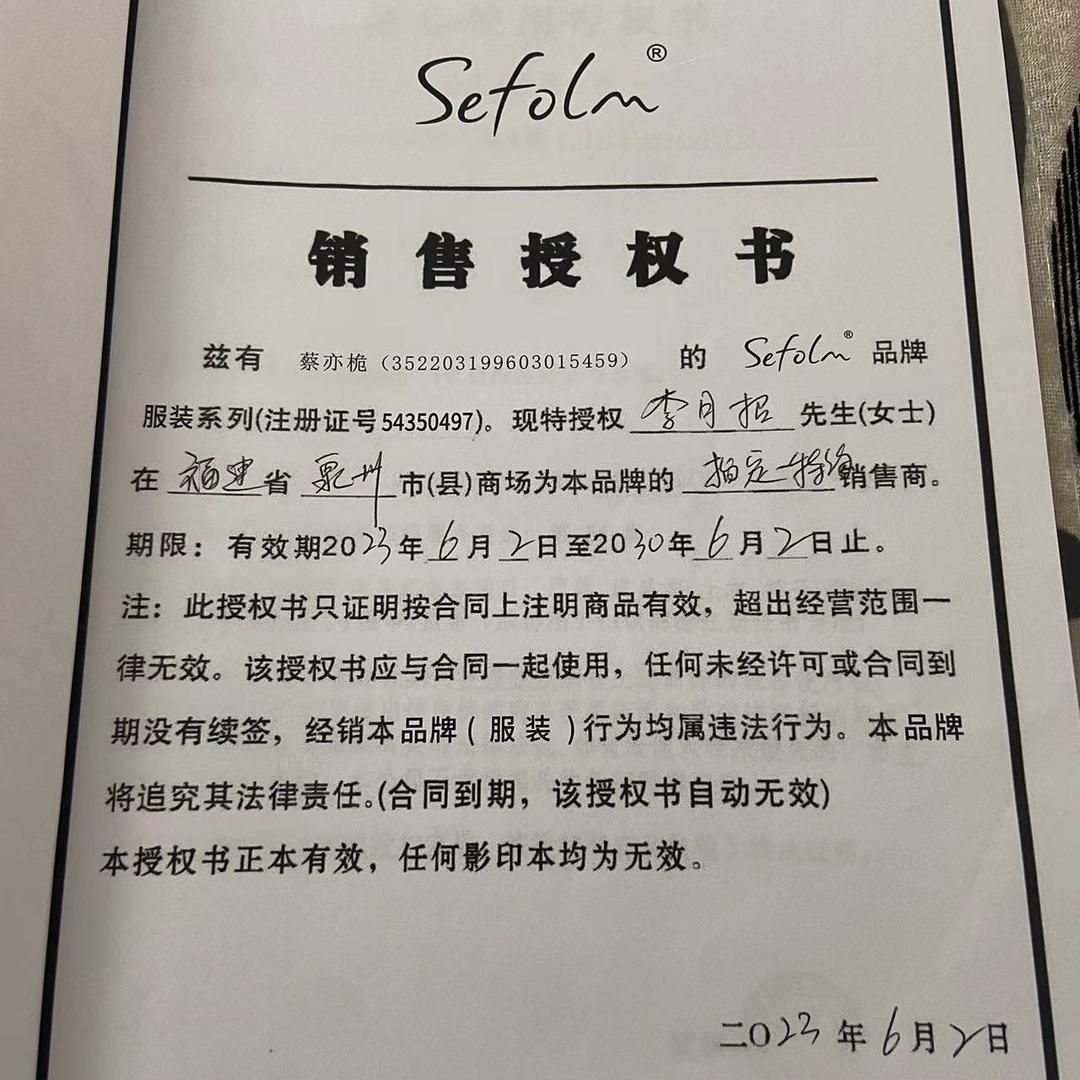 Sefolm®
销售授权书
兹有 蔡亦桅（352203199603015459） 的 Sefolm® 品牌
服装系列(注册证号54350497)。现特授权 李月招 先生(女士)
在 福建 省 泉州 市(县)商场为本品牌的 指定一特约 销售商。
期限：有效期2023年 6 月 2 日至2030年 6 月 2 日止。
注：此授权书只证明按合同上注明商品有效，超出经营范围一
律无效。该授权书应与合同一起使用，任何未经许可或合同到
期没有续签，经销本品牌(服装)行为均属违法行为。本品牌
将追究其法律责任。(合同到期，该授权书自动无效)
本授权书正本有效，任何影印本均为无效。
二O23年6月2日